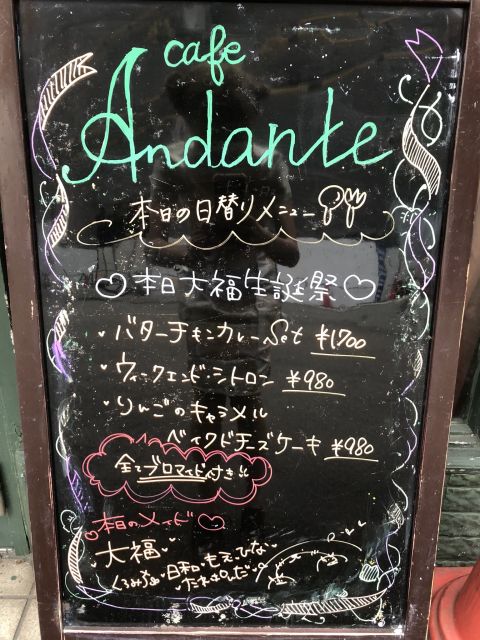 cafe
Andante
本日の日替りメニュー
♡本日大福生誕祭♡
・バターチキンカレーSet ¥1700
・ウィークエンド・シトロン ¥980
・りんごのキャラメル
ベイクドチーズケーキ ¥980
全てブロマイド付き!!
♡本日のメイド♡
大福
日和 もえ ひな